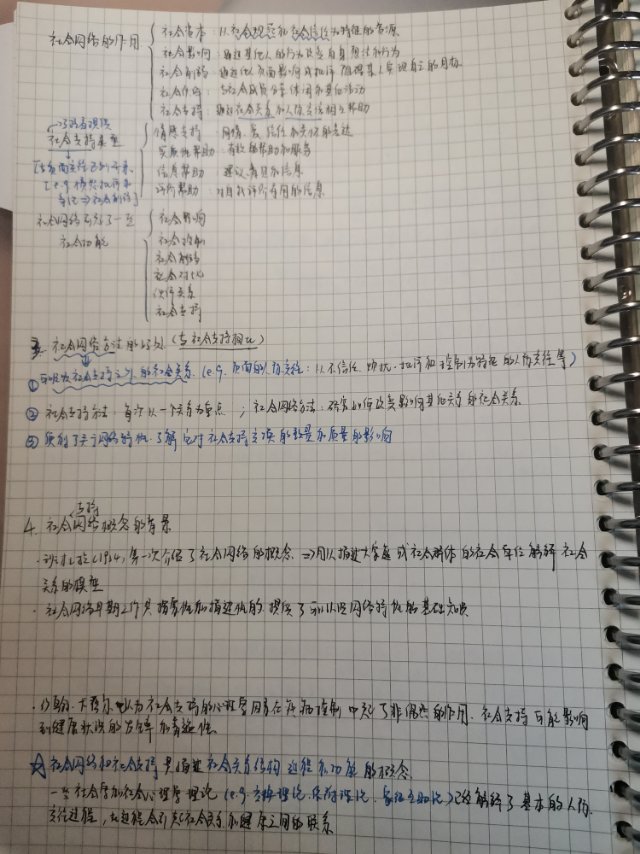 社会网络的作用
社会资本：以社会规范和社会信任为特征的资源
社会影响：通过其他人的行为改变自身想法和行为
社会削弱：通过他人负面影响或批评阻碍某人实现自己的目标
社会作伴：与社会成员分享休闲和其他活动
社会支持：通过社会关系和人际交往相互帮助
社会支持类型
情感支持：同情、爱、信任和关怀的表达
实质性帮助：有效的帮助和服务
信息帮助：建议、看法和信息
评价帮助：对自我评价有用的信息
社会网络
社会功能
社会影响
社会控制
社会削弱
社会对比
伙伴关系
社会支持
3. 社会网络方法的好处（与社会支持相比）
① 社会支持之外的社会关系（e.g. 负面的人际交往：以不信任、批评和控制为特征的人际交往等）
② 社会支持方法：每次以一个关系为重点；社会网络方法：研究如何改变影响其他关系的社会关系
③ 网络特性，了解它对社会支持交换的数量和质量的影响
支持
4. 社会网络概念的背景
(1954) 第一次介绍了社会网络的概念 ⇒ 用以描述大家庭或社会群体的社会 解释社会
关系的模型
· 社会网络早期工作是探索性和描述性的，提供了 网络特性的基础知识
· 约翰·卡塞尔 认为社会支持的心理 因素在疾病控制中起了非偶然的作用。社会支持可能影响
到健康状况的发生和易感性
☆ 社会网络和社会支持是描述社会关系结构、过程和功能的概念
一些社会学和社会心理学理论（e.g. 交换理论、依附理论、象征互动论）已经解释了基本的人际
交往过程，此过程会引起社会关系和健康之间的联系